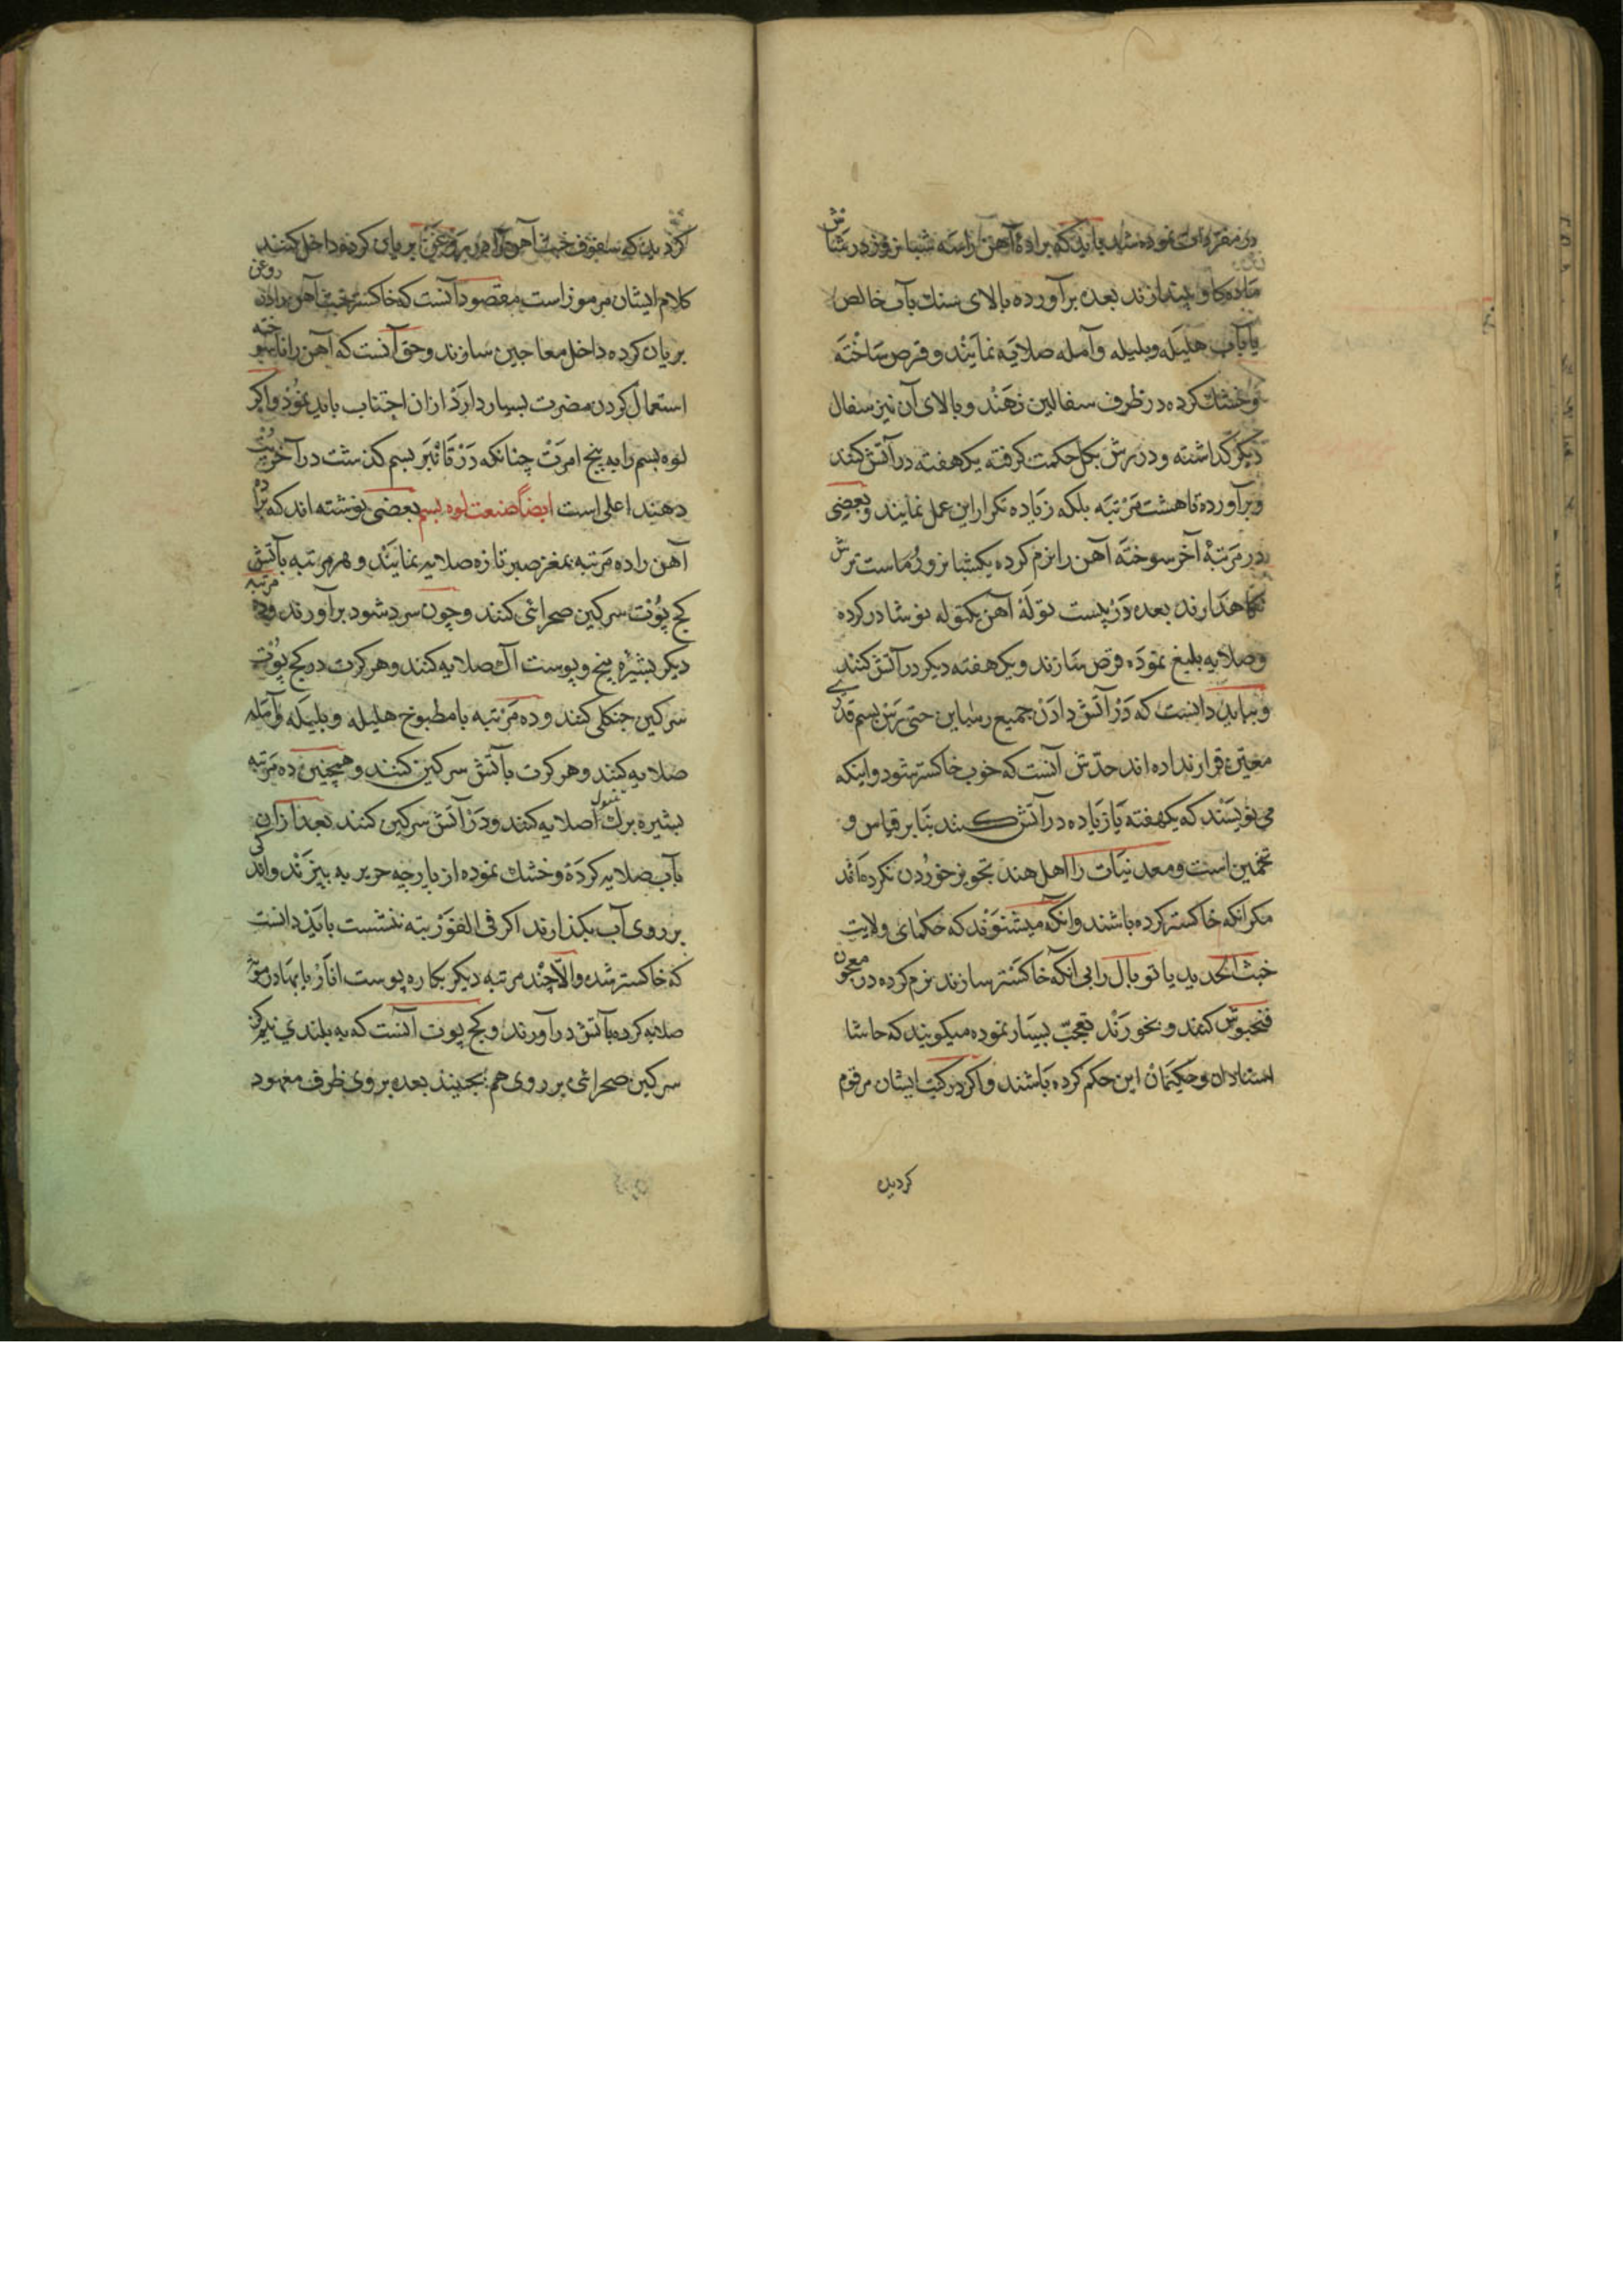 در مفردات نموده شد باید که براده آهن را سه شبانروز در شاش
ماده کاو بیندازند بعده برآورده بالای سنك بآب خالص
یا بآب هلیله وبلیله وآمله صلایه نمایند وقرص ساخته
وخشك کرده در ظرف سفالین نهند وبالای آن نیز سفال
دیکر کذاشته ودرزش بکل حکمت کرفته یکهفته در آتش کنند
وبرآورده تا هشت مرتبه بلکه زیاده تکرار این عمل نمایند وبعضی
در مرتبه آخر سوخته آهن را نرم کرده یکشبانروز در ماست ترش
نکاهدارند بعده در بیست توله آهن یکتوله نوشادر کرده
وصلایه بلیغ نموده قرص سازند ویکهفته دیکر در آتش کنند
وبباید دانست که در آتش دادن جمیع رساین حتی رس بسم قدری
معین قرار نداده اند حدش آنست که خوب خاکستر شود واینکه
می نویسند که یکهفته یا زیاده در آتش کنند بنابر قیاس و
تخمین است ومعدنیات را اهل هند تجویز خوردن نکرده اند
مکر انکه خاکستر کرده باشند وانکه میشنوند که حکمای ولایت
خبث الحدید یا توبال را بی انکه خاکستر سازند نرم کرده در معجون
فنجنوش کنند وبخورند تعجب بسیار نموده میکویند که حاشا
استادان وحکیمان این حکم کرده باشند واکر در کتب ایشان مرقوم
کردید
کردید که سفوف خبث آهن را در روغن بریان کرده داخل کنند
کلام ایشان مرموز است مقصود آنست که خاکستر خبث آهن را در روغن
بریان کرده داخل معاجین سازند وحق آنست که آهن را ناسوخته
استعمال کردن مضرت بسیار دارد ازان اجتناب باید نمود واکر
لوه بسم را به پنج امرت چنانکه در تانبر بسم کذشت در آخر پت
دهند اعلی است ایضا صنعت لوه بسم بعضی نوشته اند که براده
آهن را ده مرتبه بمغز صبر تازه صلایه نمایند وهر مرتبه بآتش
کج پوت سرکین صحرائی کنند وچون سرد شود برآورند وده مرتبه
دیکر بشیره بیخ وپوست آك صلایه کنند وهر کرت در کج پوت
سرکین جنکلی کنند وده مرتبه با مطبوخ هلیله وبلیله وآمله
صلایه کنند وهر کرت بآتش سرکین کنند وهمچنین ده مرتبه
بشیره برك تنبول صلایه کنند ودر آتش سرکین کنند بعد ازان
بآب صلایه کرده وخشك نموده از پارچه حریر به بیزند واندکی
بر روی آب بکذارند اکر فی الفور بته ننشست باید دانست
که خاکستر شده والا چند مرتبه دیکر بکاره پوست انار
صلایه کرده بآتش درآورند وکج پوت آنست که به بلندی نیم کز
سرکین صحرائی بر روی هم بچینند بعده بروی ظرف معهود